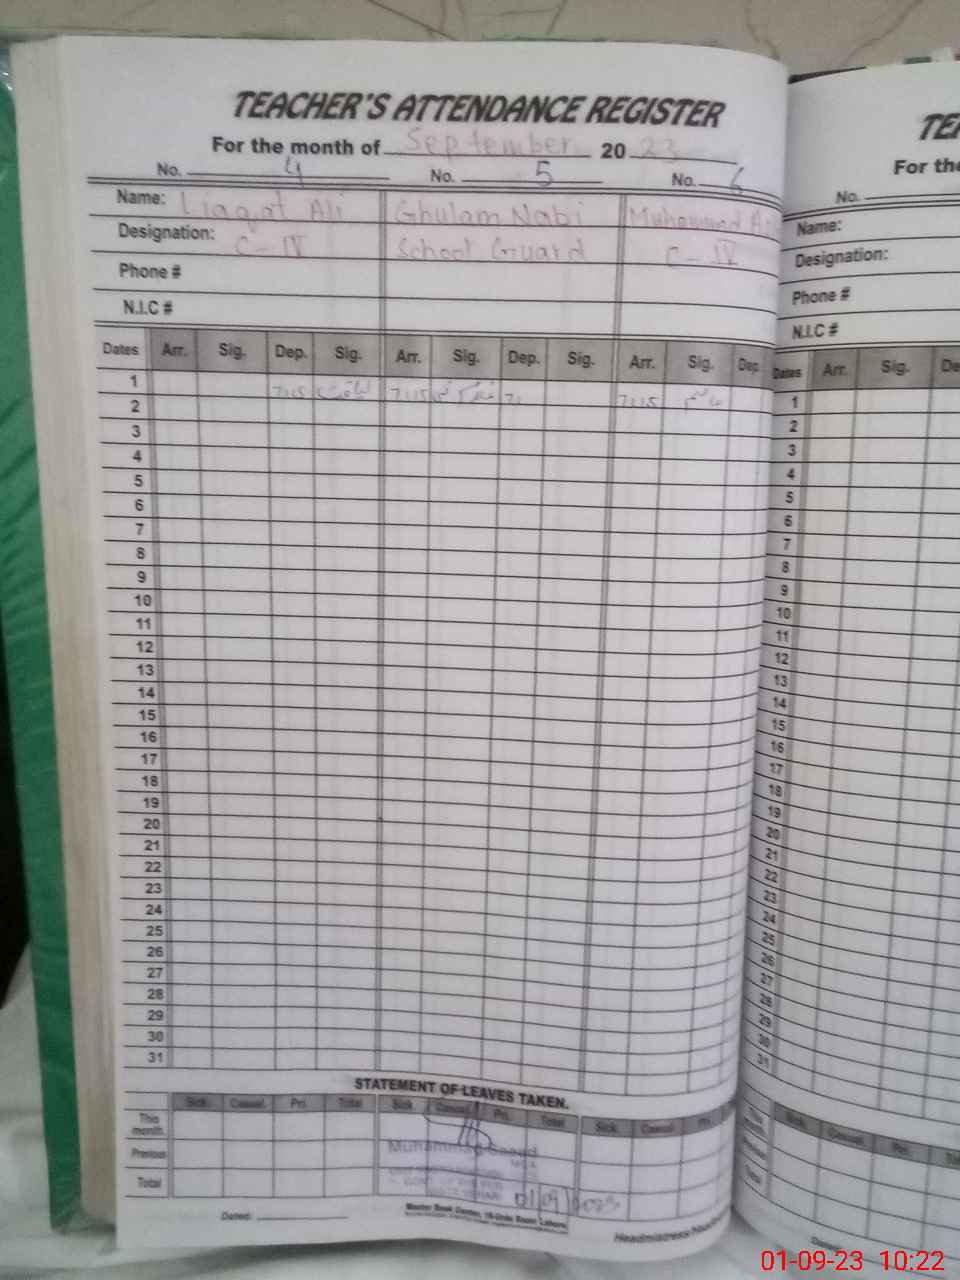 TEACHER'S ATTENDANCE REGISTER
For the month of September 2023
No. 4 No. 5 No. 6
Name: Liaqat Ali Ghulam Nabi Muhammad
Designation: C-IV School Guard C-IV
Phone #
N.I.C #
Dates Arr. Sig. Dep. Sig. Arr. Sig. Dep. Sig. Arr. Sig. Dep.
1 7:15 لیاقت 7:15 7:15
2
3
4
5
6
7
8
9
10
11
12
13
14
15
16
17
18
19
20
21
22
23
24
25
26
27
28
29
30
31
STATEMENT OF LEAVES TAKEN.
Sick Casual Pri. Total Sick Casual Pri. Total Sick Casual Pri.
This month.
Previous
Total
Muhammad Saeed
01/09/2023
Dated:
Master Book Center, 16-Urdu Bazar Lahore
Headmistress
TE
For the
No.
Name:
Designation:
Phone #
N.I.C #
Dates Arr. Sig. De
1
2
3
4
5
6
7
8
9
10
11
12
13
14
15
16
17
18
19
20
21
22
23
24
25
26
27
28
29
30
31
Sick Casual Pri. To
This month
Previous
Total
Dated
01-09-23 10:22